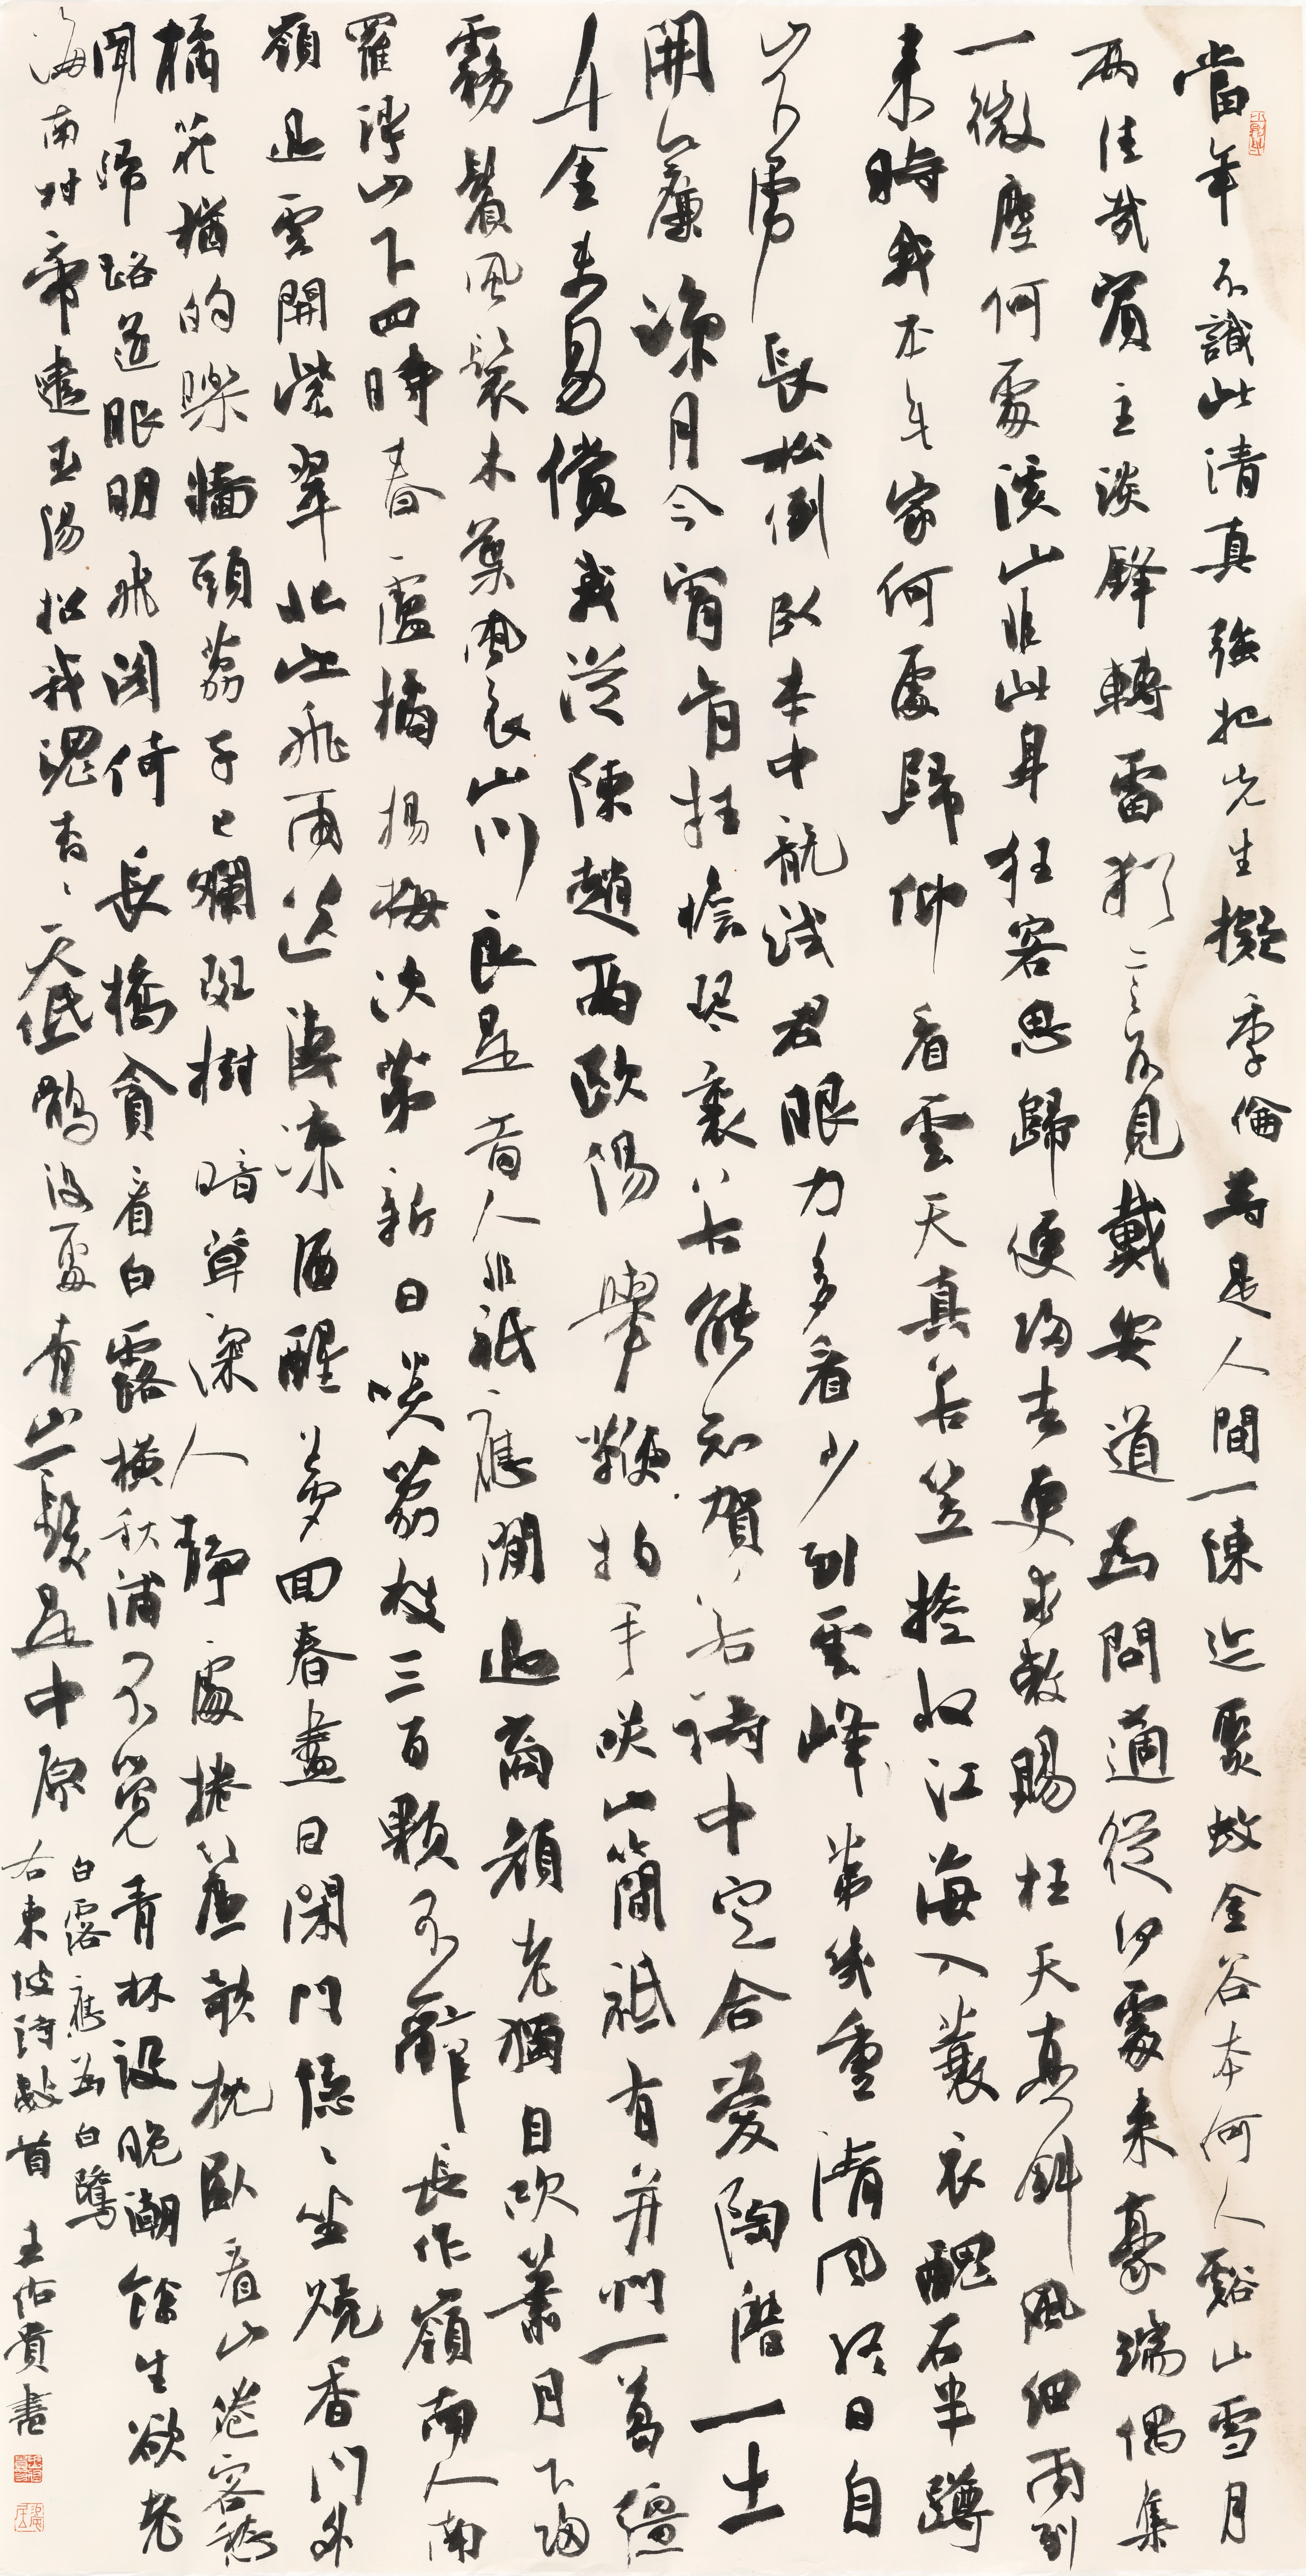 當年不識此清真強把先生擬季倫等是人間一陳迹聚蚊金谷本何人谿山雪月
兩佳哉賓主談鋒轉雷猶言不見戴安道為問適從何處來豪端偶集
一微塵何處溪山非此身狂客思歸便歸去更求敕賜枉天真斜風細雨到
來時我本無家何處歸仰看雲天真箬笠旋收江海入蓑衣醜石半蹲
山下虎長松倒臥水中龍試君眼力多看少到雲峰第幾重清風終日自
開簾涼月今宵肯挂檐琴裏若能知賀若詩中定合愛陶潛一士
千金未易償我從陳趙兩歐陽舉鞭拍手笑山簡祗有并州一葛彊
霧鬢風鬟木葉衣山川良是昔人非祗應閒過商顏老獨自吹簫月下歸
羅浮山下四時春盧橘楊梅次第新日啖荔枝三百顆不辭長作嶺南人南
嶺過雲開紫翠北江飛雨送淒涼酒醒夢回春盡日閉門隱〻坐燒香門外
橘花猶的皪牆頭荔子已斕斑樹暗草深人靜處捲簾欹枕臥看山倦客愁
聞歸路遥眼明飛閣倚長橋貪看白露橫秋浦不覺青林没晚潮餘生欲老
海南村帝遣巫陽招我魂杳〻天低鶻没處青山一髮是中原
白露應為白鷺
右東坡詩數首 王佑貴書